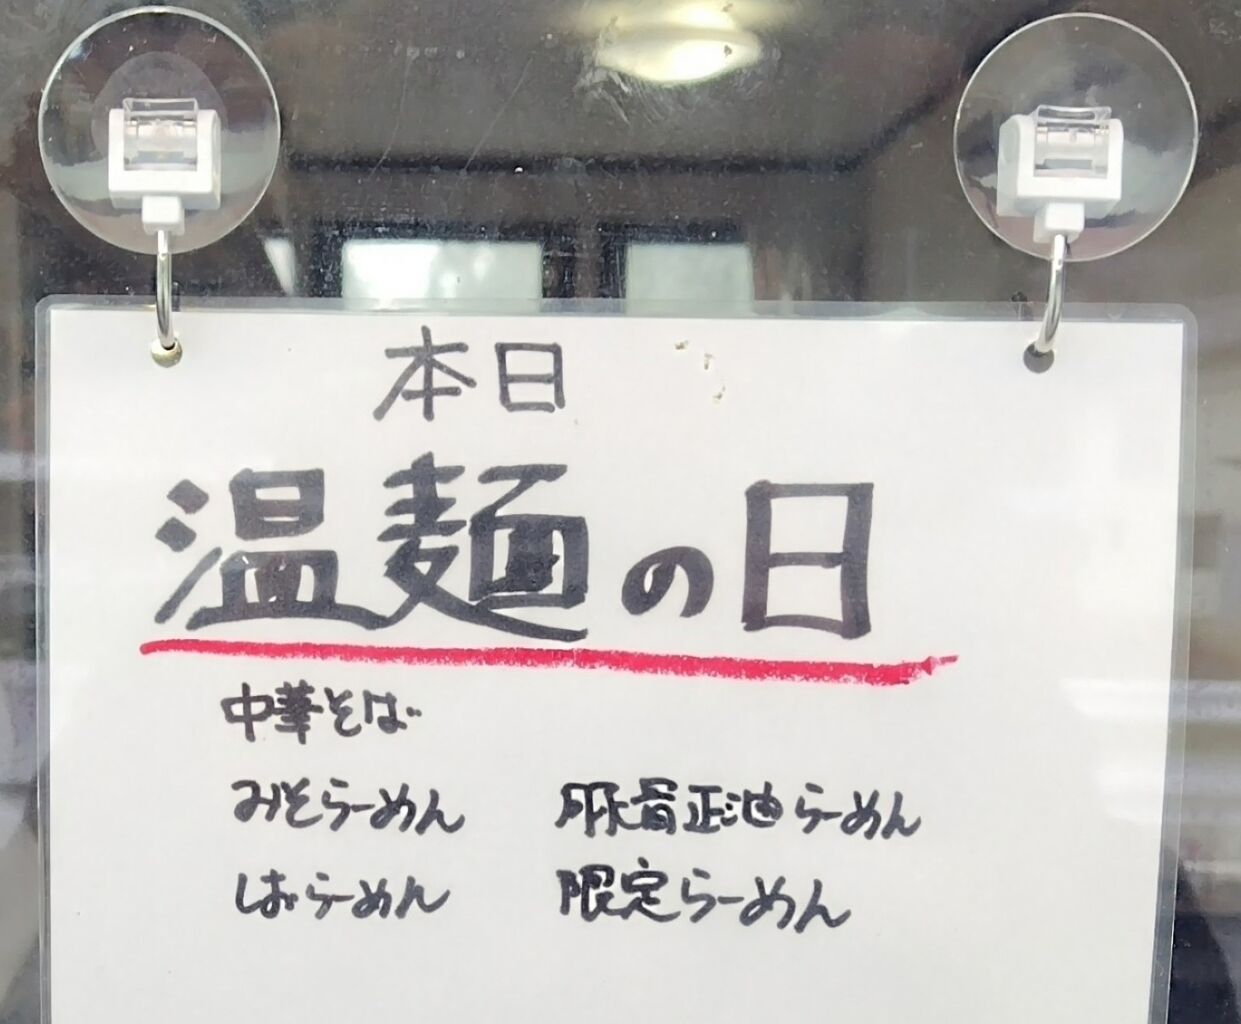 本日
温麺の日
中華そば
みそらーめん 豚骨正油らーめん
しおらーめん 限定らーめん